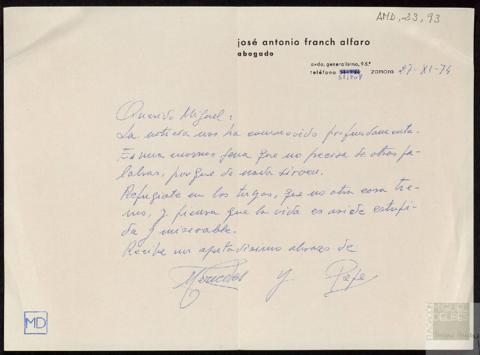 AMD, 23, 93
josé antonio franch alfaro
abogado
avda. generalísimo, 9 5.º
teléfono
zamora 27-XI-74
Querido Miguel:
La noticia nos ha conmovido profundamente.
Es una enorme pena que no precisa de otras pa-
labras, porque de nada sirven.
Refúgiate en los tuyos, que no otra cosa tene-
mos, y piensa que la vida es así de estúpi-
da y miserable.
Recibe un apretadísimo abrazo de
Mercedes y Pepe
MD
FUNDACIÓN
MIGUEL
DELIBES